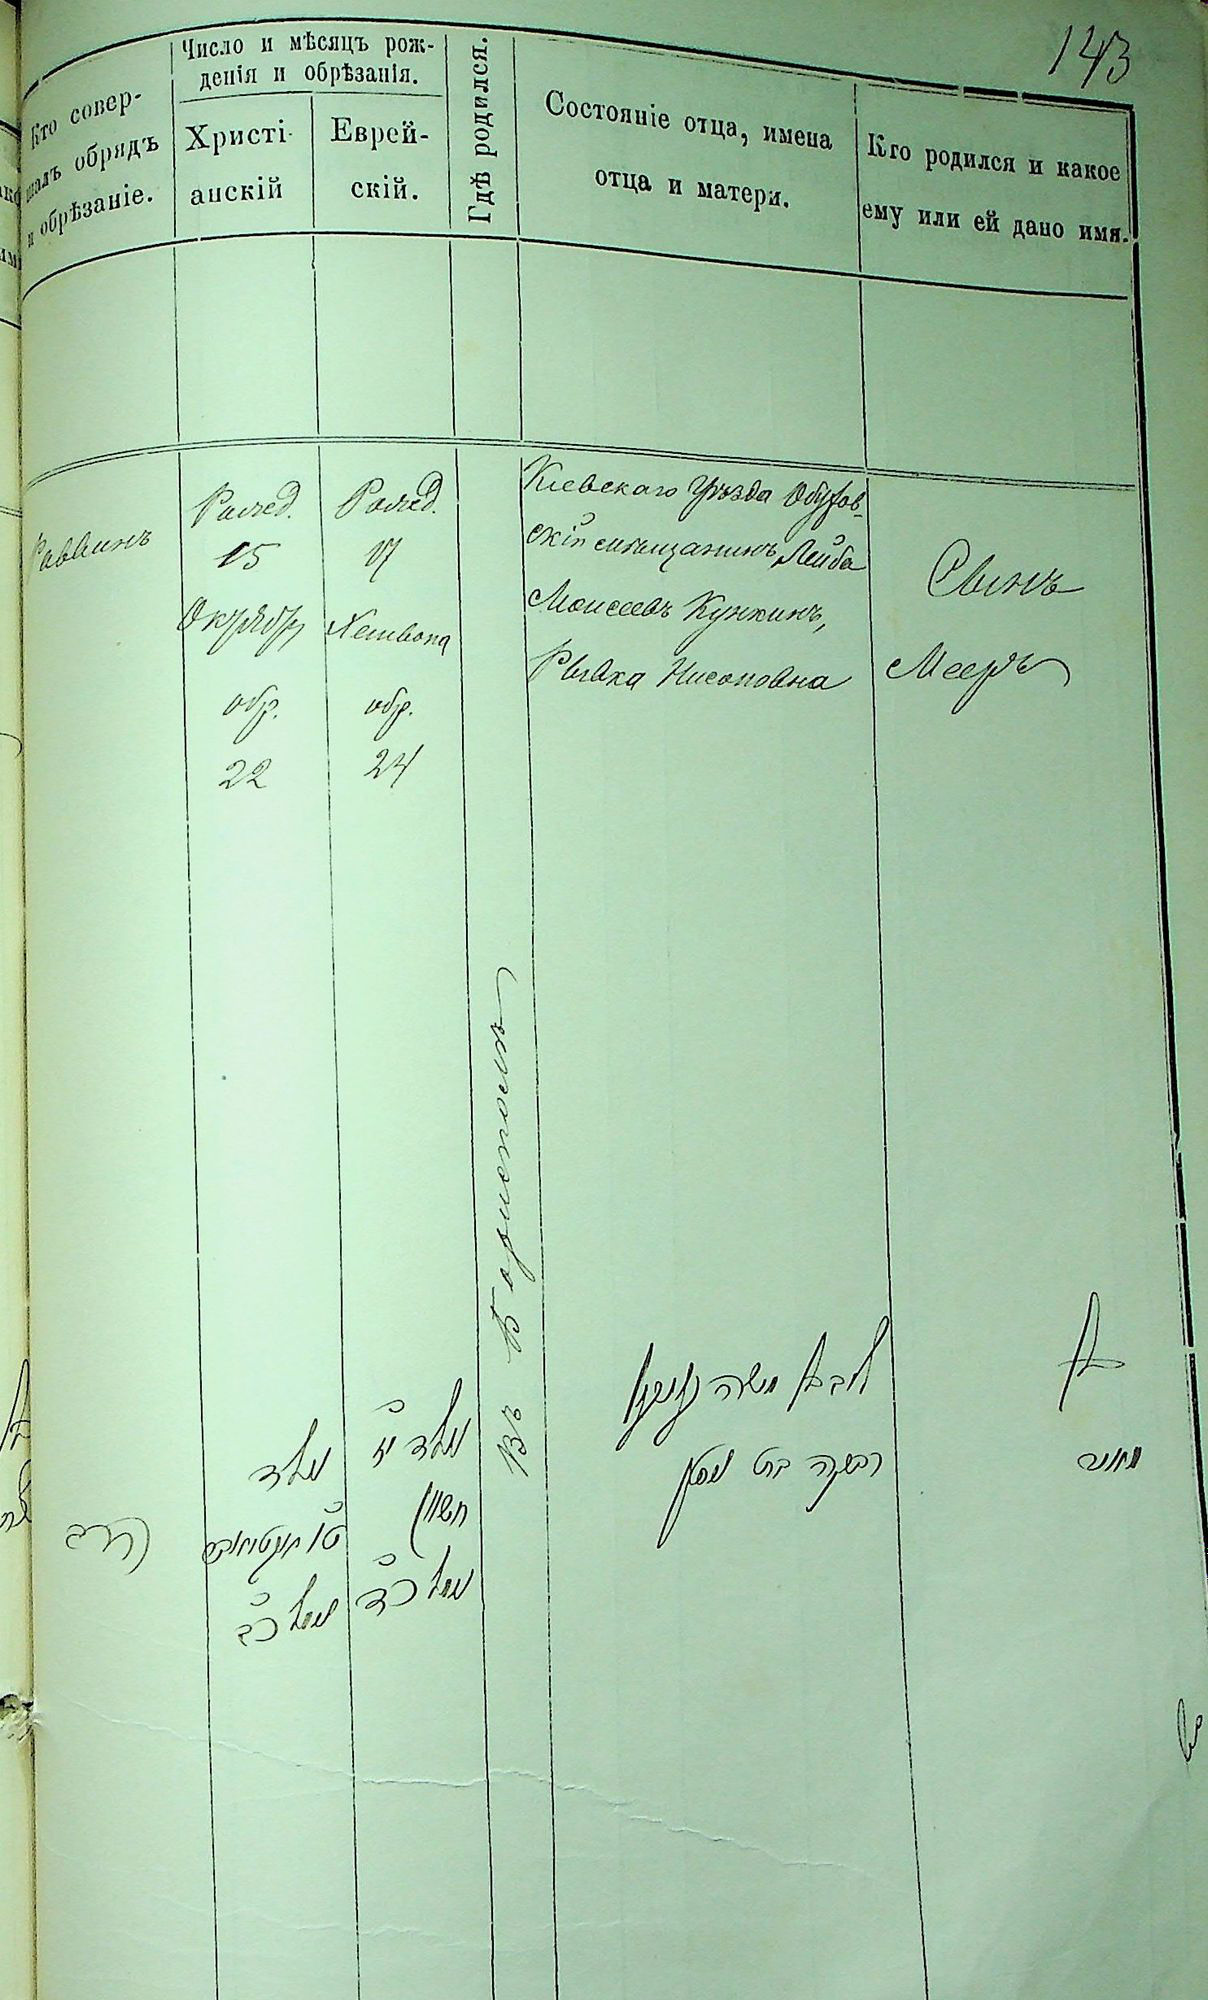 143
Кто совер-
шалъ обрядъ
и обрѣзаніе.
Число и мѣсяцъ рож-
денія и обрѣзанія.
Христі-
анскій
Еврей-
скій.
Гдѣ родился.
Состояніе отца, имена
отца и матери.
Кто родился и какое
ему или ей дано имя.
Раввинъ
Рожд.
15
Октября
обр.
22
Рожд.
17
Хешвона
обр.
24
Въ Борисполѣ
Кіевскаго Уѣзда Обухов-
скій мѣщанинъ Лейба
Моисеевъ Кункинъ,
Рывка Нисоновна
Сынъ
Мееръ
הרב
נולד
ט״ו אקטיאבר
נימול כ״ב
נולד י״ז
חשון
נימול כ״ד
ליב בן משה קונקין
רבקה בת ניסן
בן
מאיר